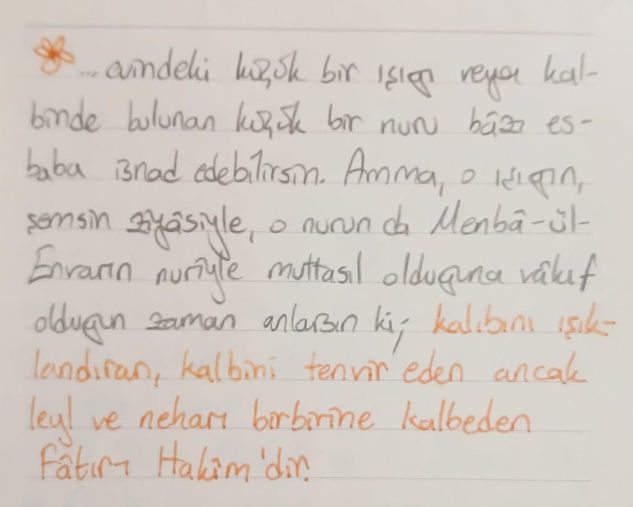 ...evindeki küçük bir ışığı veya kal-
binde bulunan küçük bir nuru bâzı es-
baba isnad edebilirsin. Amma, o ışığın,
şemsin ziyâsiyle, o nurun da Menbâ-ül-
Envarın nuriyle muttasıl olduğuna vâkıf
olduğun zaman anlarsın ki; kalıbını ışık-
landıran, kalbini tenvir eden ancak
leyl ve neharı birbirine kalbeden
Fâtır-ı Hakîm'dir.